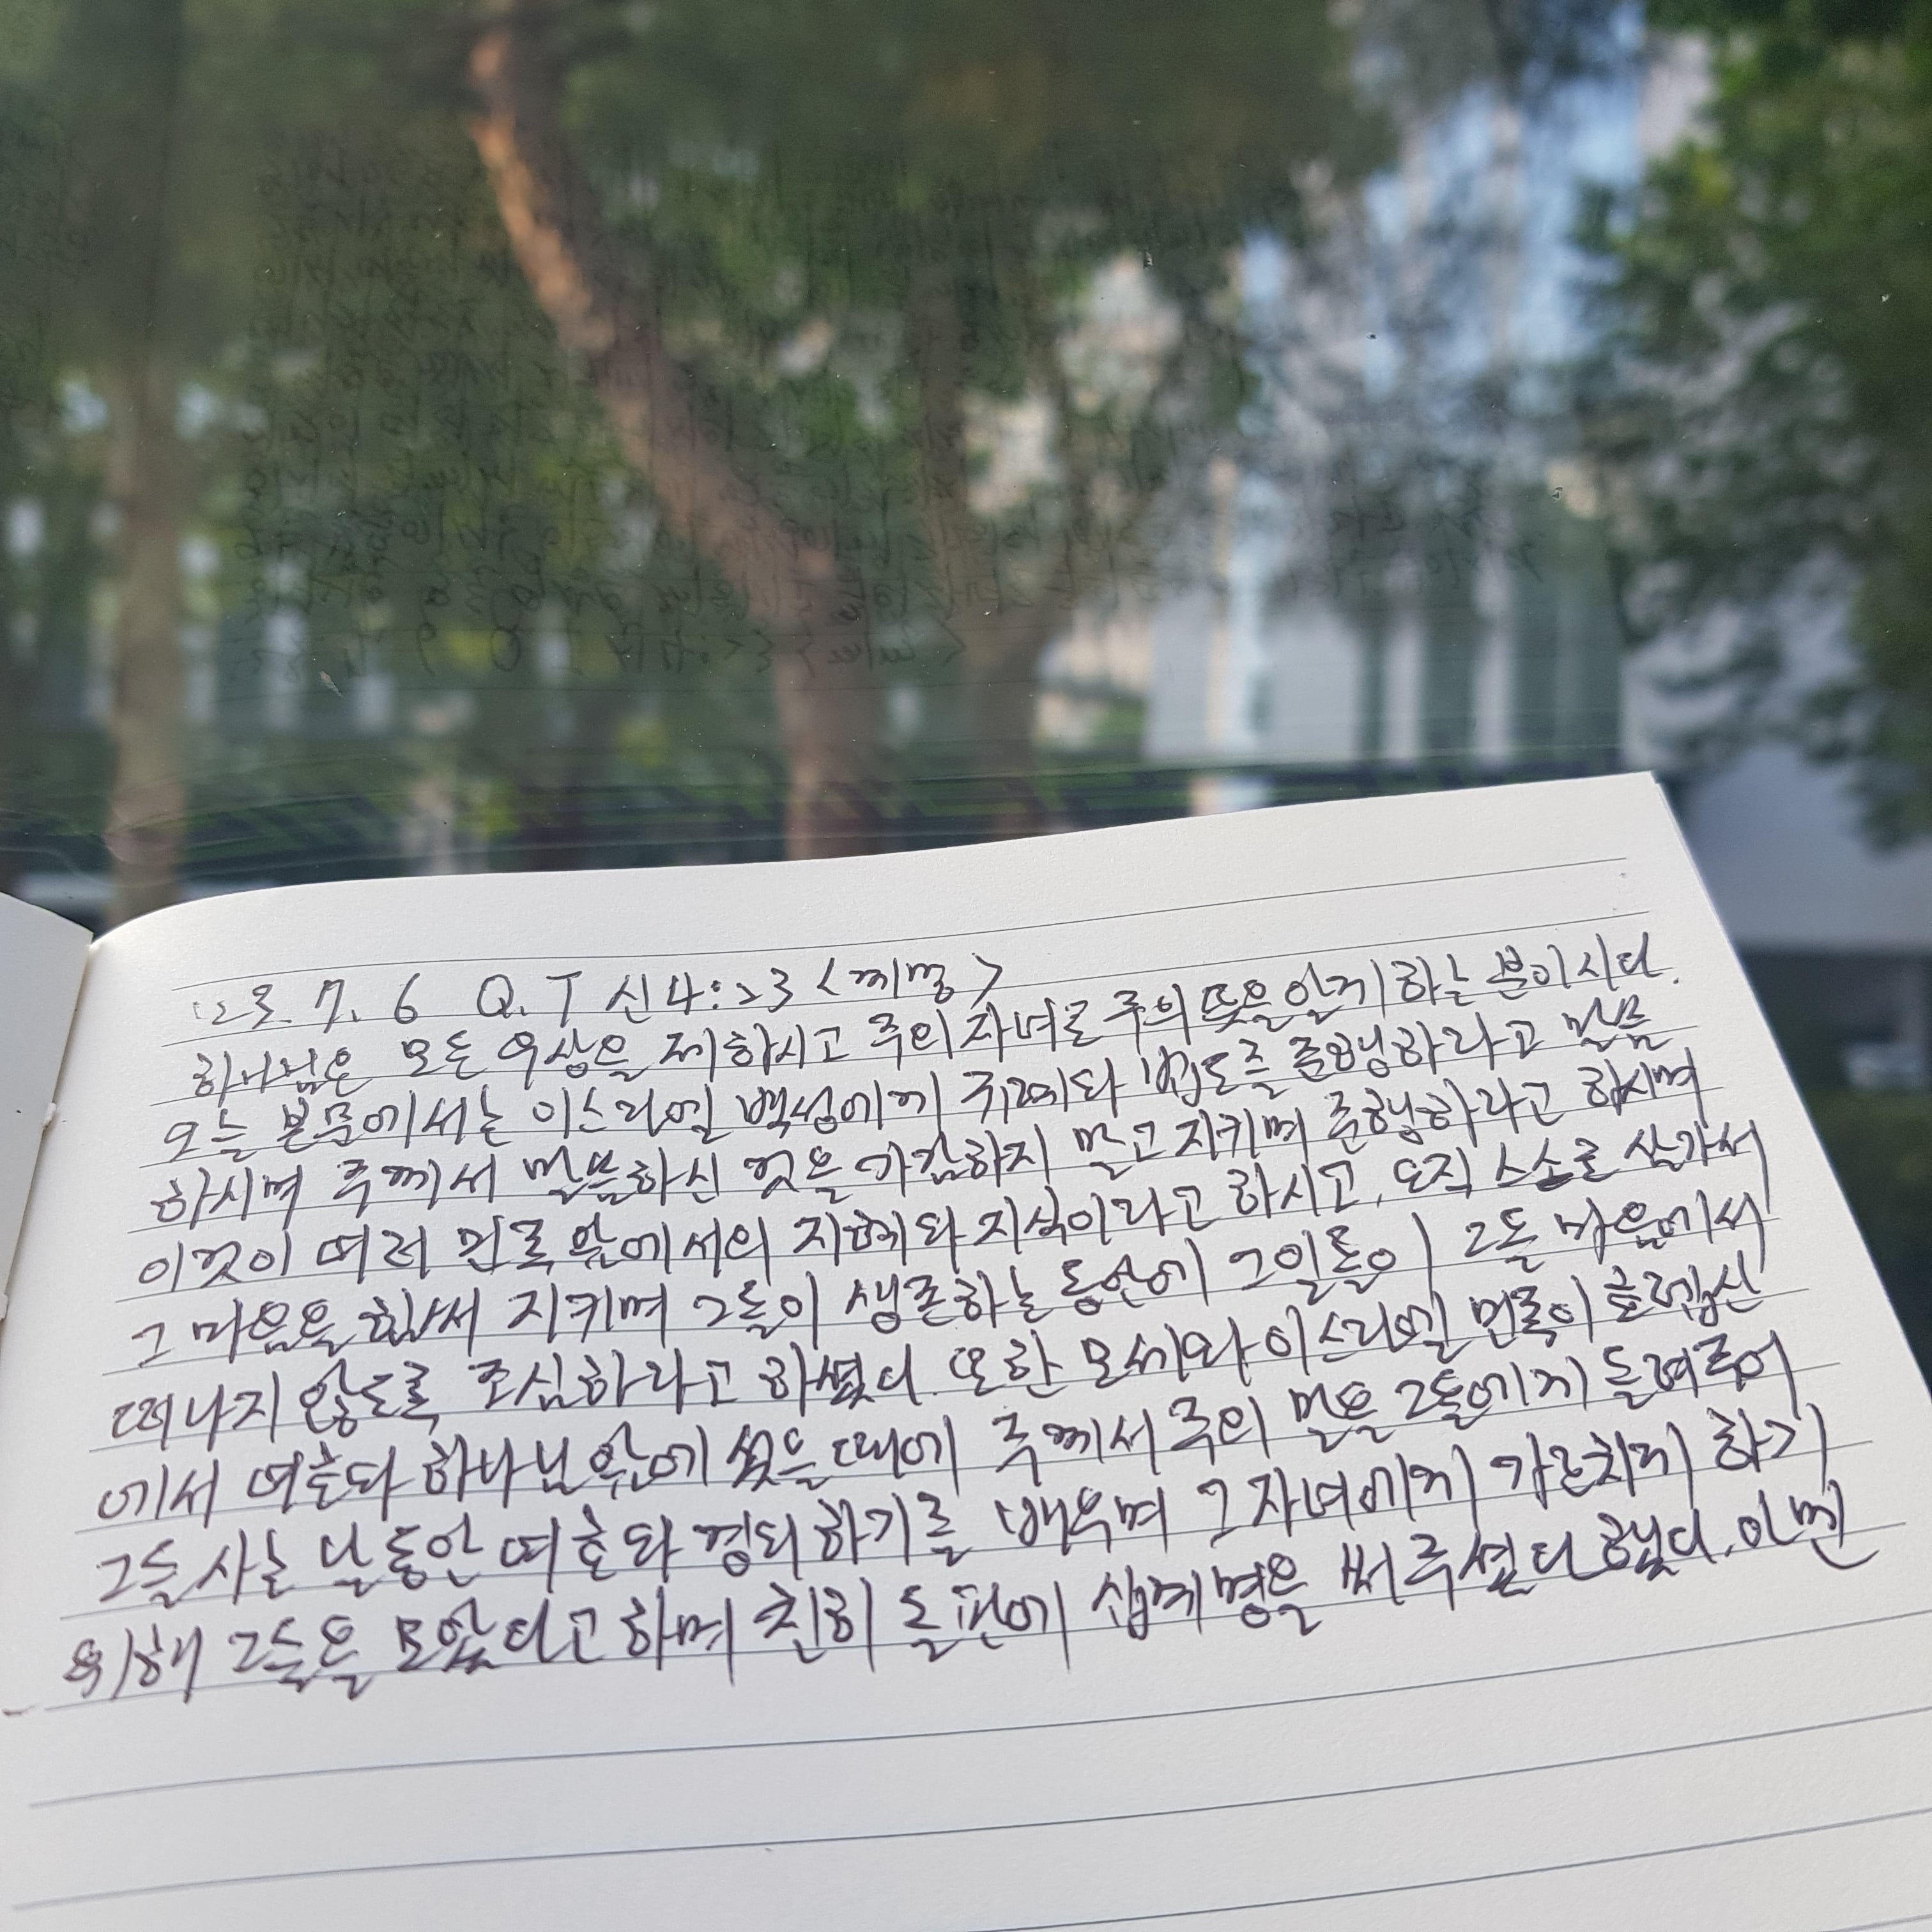 7. 6 Q.T 신4:23 <계명>
하나님은 모든 우상을 제하시고 주의 자녀로 주의 뜻을 알게 하는 분이시다.
오늘 본문에서는 이스라엘 백성에게 규례와 법도를 준행하라고 말씀
하시며 주께서 말씀하신 것을 가감하지 말고 지키며 준행하라고 하시며
이것이 여러 민족 앞에서의 지혜와 지식이라고 하시고, 오직 스스로 삼가서
그 마음을 힘써 지키며 그들이 생존하는 동안에 그 일들이 그들 마음에서
떠나지 않도록 조심하라고 하셨다. 또한 모세와 이스라엘 민족이 호렙산
에서 여호와 하나님 앞에 섰을 때에 주께서 주의 말을 그들에게 들려주어
그들 사는 날 동안 여호와 경외하기를 배우며 그 자녀에게 가르치게 하기
위해 그들을 모았다고 하며 친히 돌판에 십계명을 써 주셨다 했다. 아멘